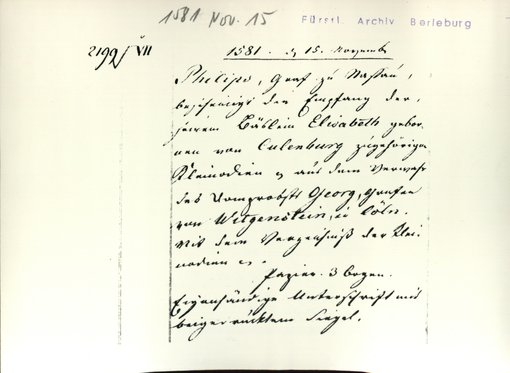 1581 Nov. 15
Fürstl. Archiv Berleburg
2199/VII
1581. 15. November
Philipp, Graf zu Nassau,
bescheinigt den Empfang der,
seinem Bäslein Elisabeth gebor-
nen von Culenburg zugehörigen
Kleinodien aus dem Verwahr
des Domprobsts Georg, Grafen
von Witgenstein, in Cöln.
Mit dem Verzeichniß der Klei-
nodien
Papier. 3 Bogen.
Eigenhändige Unterschrift mit
beigedrücktem Siegel.